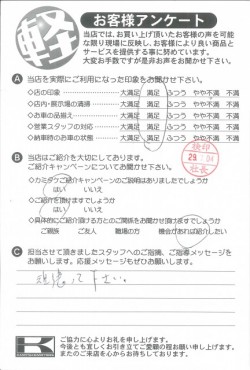 軽
お客様アンケート
当店では、お買い上げ頂いたお客様の声を可能
な限り現場に反映し、お客様により良い商品と
サービスを提供する事に努めています。
大変お手数ですが是非お声をお聞かせ下さい。
A 当店を実際にご利用になった印象をお聞かせ下さい。
◇店の印象 大満足 満足 ふつう やや不満 不満
◇店内・展示場の清掃 大満足 満足 ふつう やや不満 不満
◇お車の品揃え 大満足 満足 ふつう やや不満 不満
◇営業スタッフの対応 大満足 満足 ふつう やや不満 不満
◇納車時のお車の状態 大満足 満足 ふつう やや不満 不満
B 当店はご紹介を大切にしております。
ご紹介キャンペーンについてお聞かせ下さい。
検印
社長
◇カミタケご紹介キャンペーンのご説明はありましたでしょうか
はい いいえ
◇ご紹介を頂けますでしょうか
はい いいえ
◇具体的にご紹介頂ける方とのご関係をお聞かせ頂けますでしょうか
ご親族 ご友人 職場の方 機会があれば紹介したい
C 担当させて頂きましたスタッフへのご指摘、ご指導メッセージを
お願いします。応援メッセージもぜひお願いします。
頑張って下さい。
K
ご協力に心よりお礼を申し上げます。
今後とも宜しくお引き立てご愛顧の程お願い申し上げます。
またのご来店を心からお待ちしております。